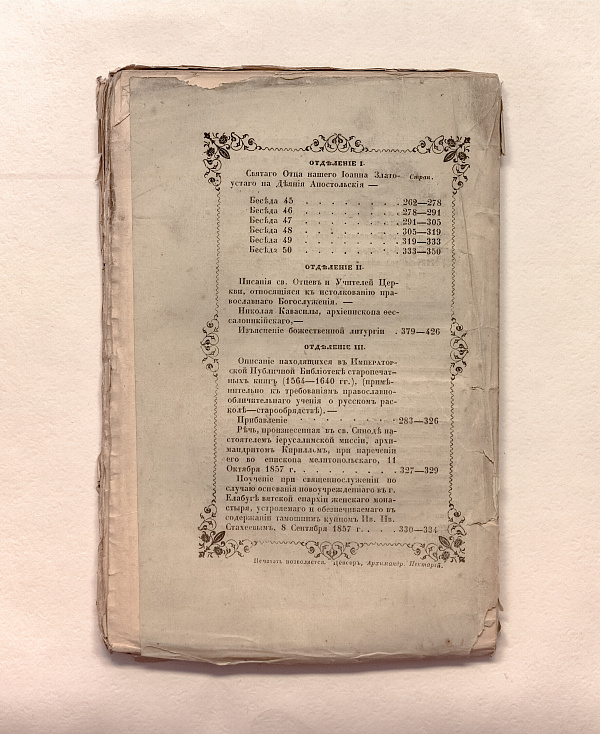 ОТДѢЛЕНІЕ I.
Святаго Отца нашего Іоанна Злато- Стран.
устаго на Дѣянія Апостольскія —
Бесѣда 45 . . . . . . . . 262—278
Бесѣда 46 . . . . . . . . 278—291
Бесѣда 47 . . . . . . . . 291—305
Бесѣда 48 . . . . . . . . 305—319
Бесѣда 49 . . . . . . . . 319—333
Бесѣда 50 . . . . . . . . 333—350
ОТДѢЛЕНІЕ II.
Писанія св. Отцевъ и Учителей Цер-
кви, относящіяся къ истолкованію пра-
вославнаго Богослуженія. —
Николая Кавасилы, архіепископа ѳес-
салоникійскаго,—
Изъясненіе божественной литургіи . 379—426
ОТДѢЛЕНІЕ III.
Описаніе находящихся въ Император-
ской Публичной Библіотекѣ старопечат-
ныхъ книгъ (1564—1640 гг.), (примѣ-
нительно къ требованіямъ православно-
обличительнаго ученія о русскомъ рас-
колѣ—старообрядствѣ).—
Прибавленіе . . . . . . . . 283—326
Рѣчь, произнесенная въ св. Синодѣ на-
стоятелемъ іерусалимской миссіи, архи-
мандритомъ Кирилломъ, при нареченіи
его во епископа мелитопольскаго, 11
Октября 1857 г. . . . . . . . 327—329
Поученіе при священнослуженіи по
случаю основанія новоучрежденнаго въ г.
Елабугѣ вятской епархіи женскаго мона-
стыря, устрояемаго и обезпечиваемаго въ
содержаніи тамошнимъ купцомъ Ив. Ив.
Стахеевымъ, 8 Сентября 1857 г. . . . 330—334
Печатать позволяется. Цензоръ, Архимандр. Несторій.